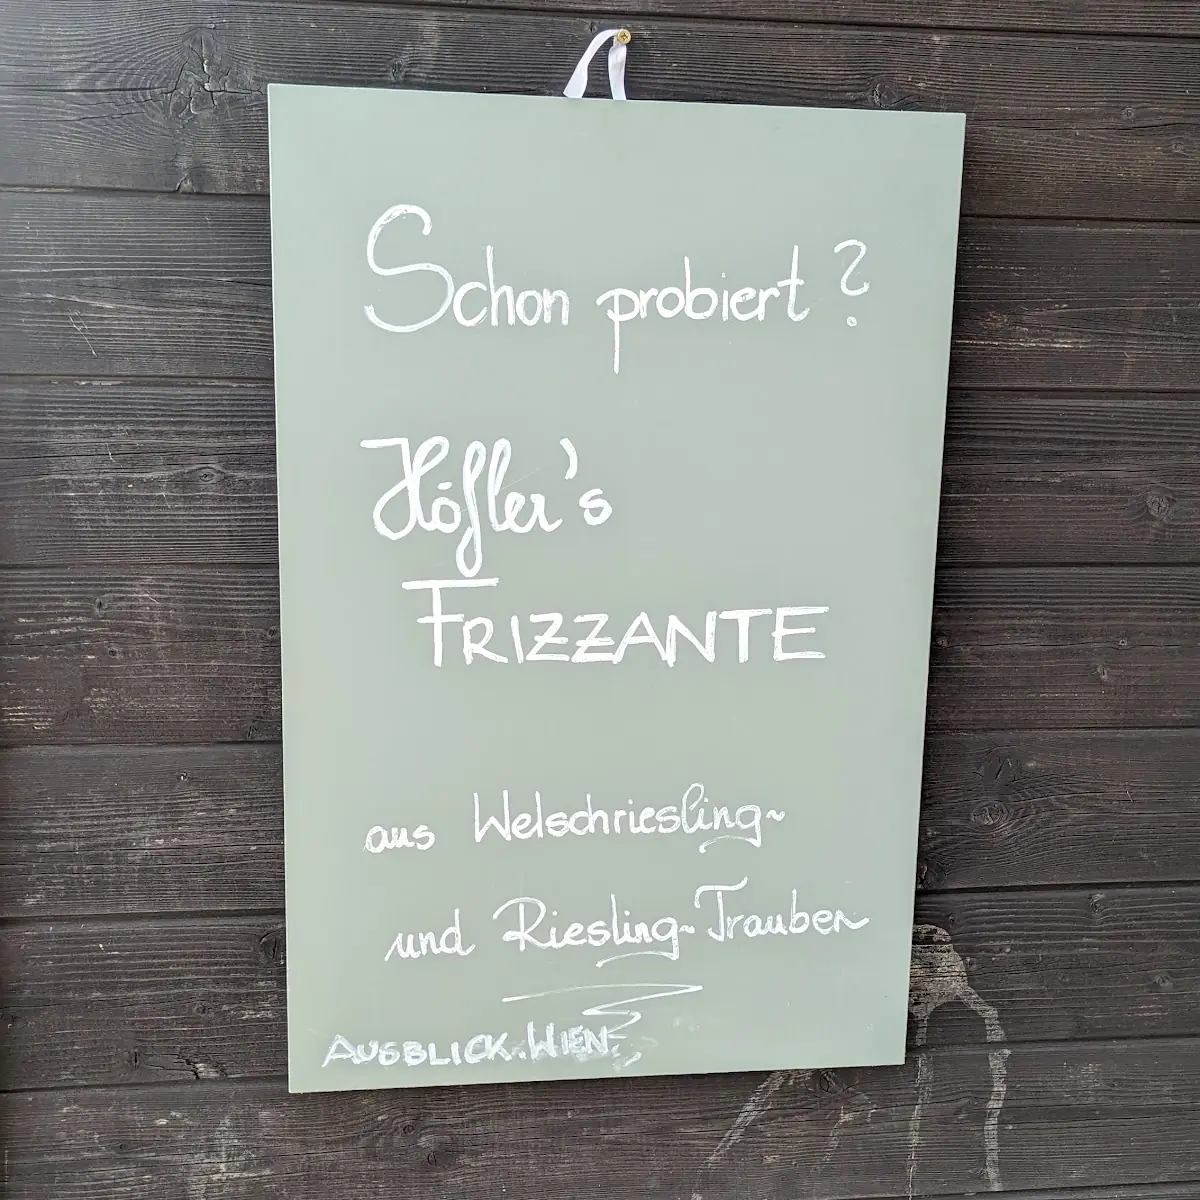 Schon probiert?
Höfler's
FRIZZANTE
aus Welschriesling-
und Riesling-Trauben
AUSBLICK.WIEN